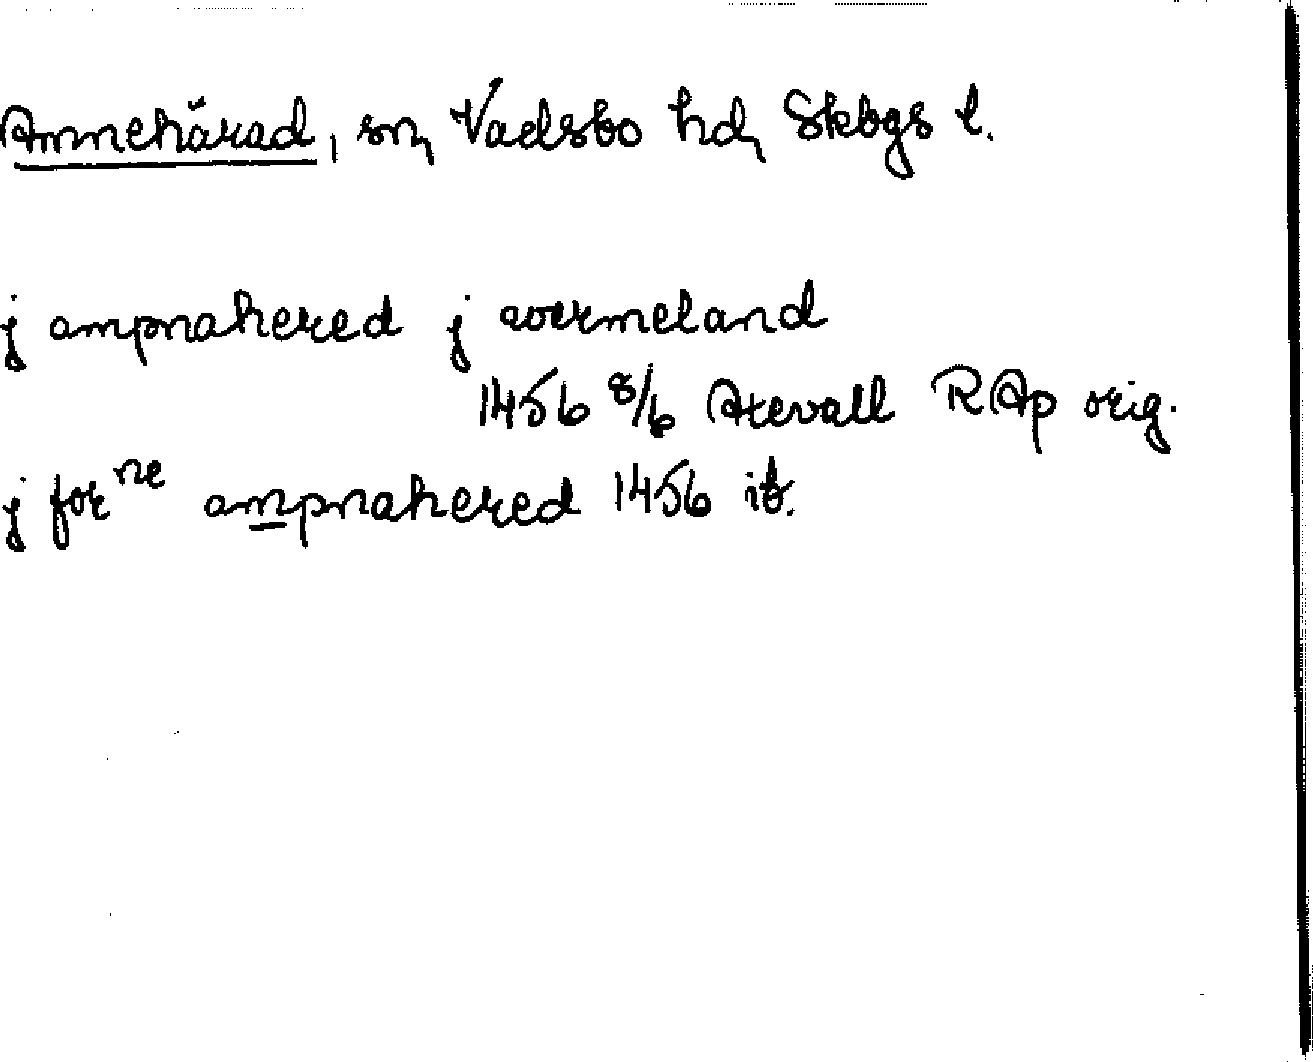 Amnehärad, sn, Vadsbo hd, Skbgs l.
j ampnahered j wermeland
1456 8/6 Årevall RAp orig.
j for ne ampnahered 1456 ib.